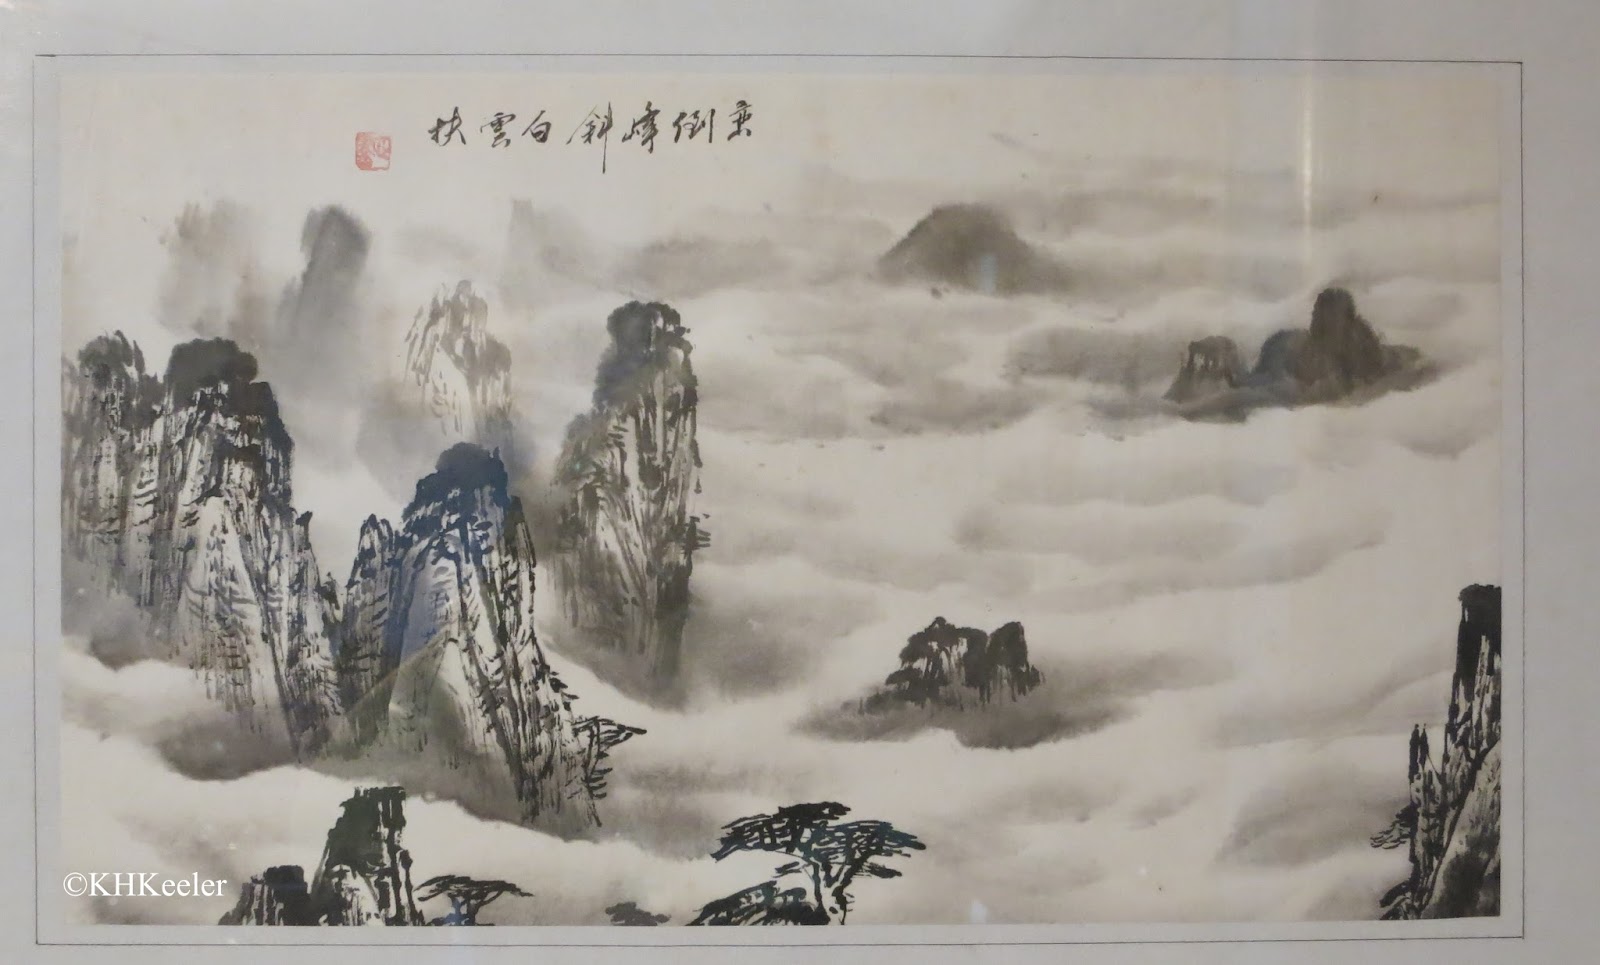 峦倒峰斜白雲扶
©KHKeeler